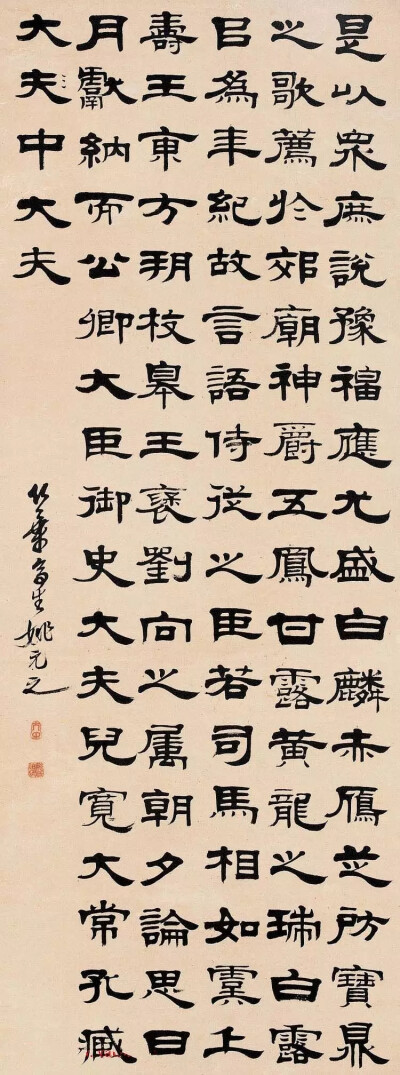 是以眾庶說豫福應尤盛白麟赤鴈芝房寶鼎
之歌薦於郊廟神爵五鳳甘露黃龍之瑞白露
㠯為年紀故言語侍從之臣若司馬相如虞丘
壽王東方朔枚皋王褒劉向之属朝夕論思日
月獻納而公卿大臣御史大夫兒寬大常孔臧
大夫中大夫
竹葉亭生姚元之